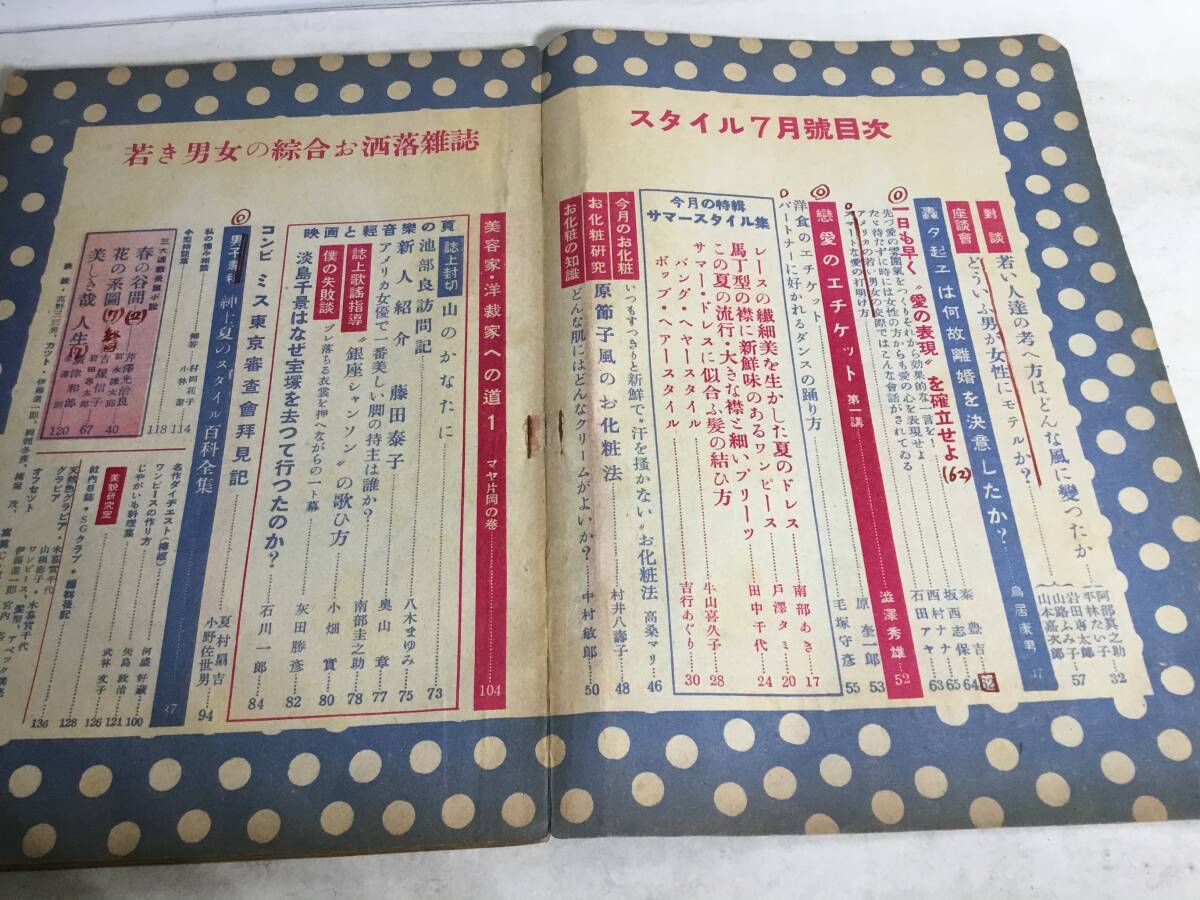 スタイル7月號目次
對談
若い人達の考へ方はどんな風に變つたか
阿部眞之助
平林たい子
32
座談會
どういふ男が女性にモテルか?
岩田専太郎
山路ふみ子
山本嘉次郎
57
夕起ヱは何故離婚を決意したか?
37
一日も早く〝愛の表現〟を確立せよ
(62)
秦豊吉
64
坂西志保
65
先づ愛の雰圍氣をつくりそれから効果的な一言を!
西村ナナ
63
たゞ待たずに時には女性の方からも愛の心を表現せよ
石田アヤ
アメリカの若い男女の交際ではこんな會話がされてゐる
戀愛のエチケット 第一講
澁澤秀雄
52
スマートな愛の打明け方
原奎一郎
53
洋食のエチケット
毛塚守彦
55
パートナーに好かれるダンスの踊り方
今月の特輯
サマースタイル集
レースの繊細美を生かした夏のドレス
南部あき
17
馬丁型の襟に新鮮味のあるワンピース
戸澤タミ
20
この夏の流行・大きな襟と細いプリーツ
田中千代
24
サマー・ドレスに似合ふ髪の結ひ方
牛山喜久子
28
バング・ヘヤースタイル
吉行あぐり
30
ボップ・ヘアースタイル
今月のお化粧
いつもすっきりと新鮮で〝汗を掻かない〟お化粧法
高桑マリ
46
お化粧研究
原節子風のお化粧法
村井八壽子
48
お化粧の知識
どんな肌にはどんなクリームがよいか?
中村敏郎
50
若き男女の綜合お洒落雜誌
美容家・洋裁家への道1
マヤ片岡の巻
104
映画と輕音樂の頁
誌上封切
山のかなたに
73
池部良訪問記
八木まゆみ
75
新人紹介 藤田泰子
アメリカ女優で一番美しい脚の持主は誰か?
奥山章
77
誌上歌謠指導
〝銀座シャンソン〟の歌ひ方
南部圭之助
78
僕の失敗談
ズレ落ちる衣裳を押へながらの一ト幕
小畑實
80
淡島千景はなぜ宝塚を去つて行つたのか?
灰田勝彦
82
コンビ ミス東京審査會拜見記
石川一郎
84
男子専科
紳士夏のスタイル百科全集
87
夏村扇吉
小野佐世男
94
私の悩み相談
村岡花子
114
小林
118
三大連載長篇小説
春の谷間
(22)
芹澤光治良
40
花の系圖
(7)
終
吉屋信子
67
美しき哉人生
廣津和郎
120
名作ダイヂェスト
何盛好藏
100
ワンピースの作り方
矢島敗治
121
じやがいも料理集
武林文子
126
美貌研究室
社内日誌・SGクラブ・編輯後記
128
天然色グラビア・木暮實千代
グラビア
136
オフセット